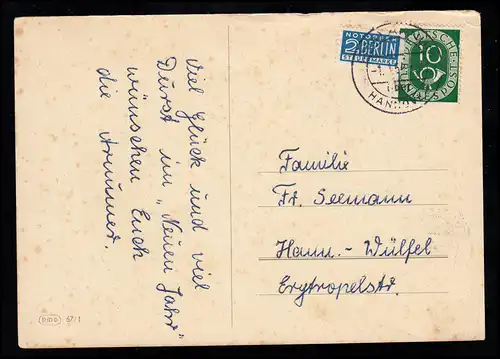 Viel Glück und viel
Durst im „Neuen Jahr"
wünschen Euch
die
NOTOPFER
2 BERLIN
STEUERMARKE
DEUTSCHE
10
BUNDESPOST
HANNOVER
Familie
Fr. Seemann
Hann.-Wülfel
Ergtropelstr.
67/1